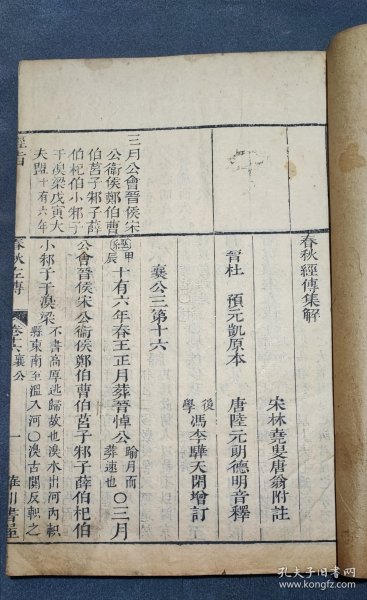 春秋經傳集解
宋林堯叟唐翁附註
晉杜 預元凱原本 唐陸元朗德明音釋
後學 馮李驊天閑增訂
襄公三第十六
經 甲辰 十有六年春王正月葬晉悼公 踰月而葬速也 ○三月
公會晉侯宋公衞侯鄭伯曹伯莒子邾子薛伯杞伯
小邾子于溴梁 不書高厚逃歸故也溴水出河內軹縣東南至溫入河○溴古闃反軹之
經旨
三月公會晉侯宋
公衞侯鄭伯曹
伯莒子邾子薛
伯杞伯小邾子
于溴梁戊寅大
夫盟 十有六年
春秋左傳 卷十六 襄公 一 華川書屋
孔夫子旧书网